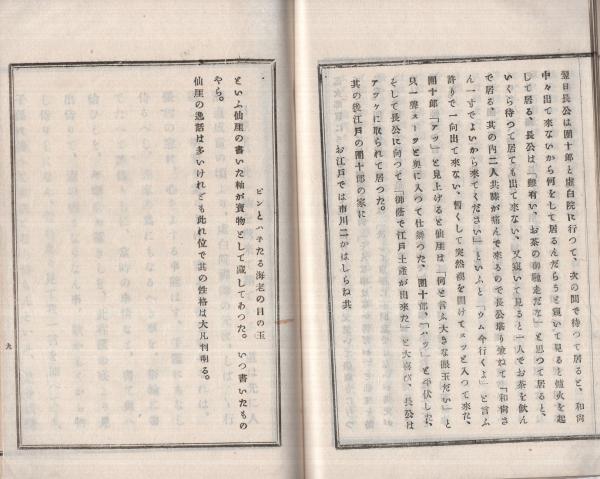 翌日長公は團十郎と虛白院に行つて、次の間で待つて居ると、和尙
中々出て來ないから何をして居るんだらうと窺いて見ると爐火を起
して居る、長公は「難有い、お茶の御馳走だな」と思つて居ると、
いくら待つて居ても出て來ない、又窺いて見ると一人でお茶を飮ん
で居る、其の內二人共膝が痛んで來るので長公堪り兼ねて「和尙さ
ん一寸でよいから來てください」といふと「ウム今行くよ」と言ふ
許りで一向出て來ない、暫くして突然襖を開けてスツと入つて來た、
團十郎「アツ」と見上げると仙崖は「何と言ふ大きな眼玉だい」と
只一聲スーツと奧に入つて仕舞つた、團十郎、「ハツ」と平伏した、
そして長公に向つて「御蔭で江戶土產が出來た」と大喜び、長公は
アツケに取られて居つた。
其の後江戶の團十郎の家に
お江戶では市川二かはしらね共
ピンとハネたる海老の目の玉
といふ仙崖の書いた軸が寶物として藏してあつた。いつ書いたもの
やら。
仙崖の逸話は多いけれども此れ位で其の性格は大凡判明る。
九